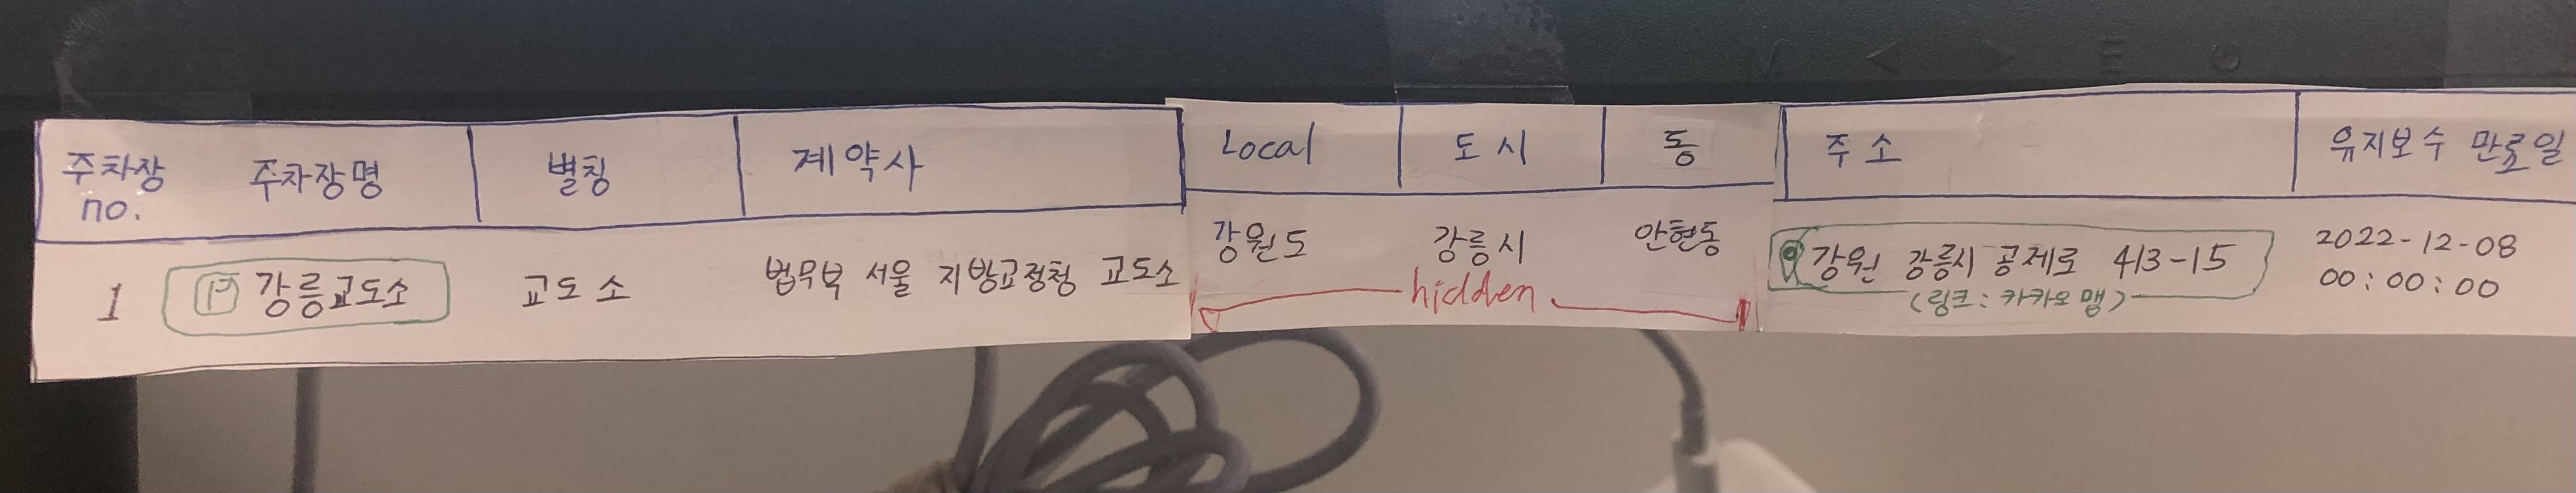 주차장 no. 주차장명 별칭 계약사 Local 도시 동 주소 유지보수 만료일
1 P 강릉교도소 교도소 법무부 서울 지방교정청 교도소 강원도 강릉시 안현동 강원 강릉시 공제로 413-15 2022-12-08 00:00:00
hidden
(링크: 카카오맵)